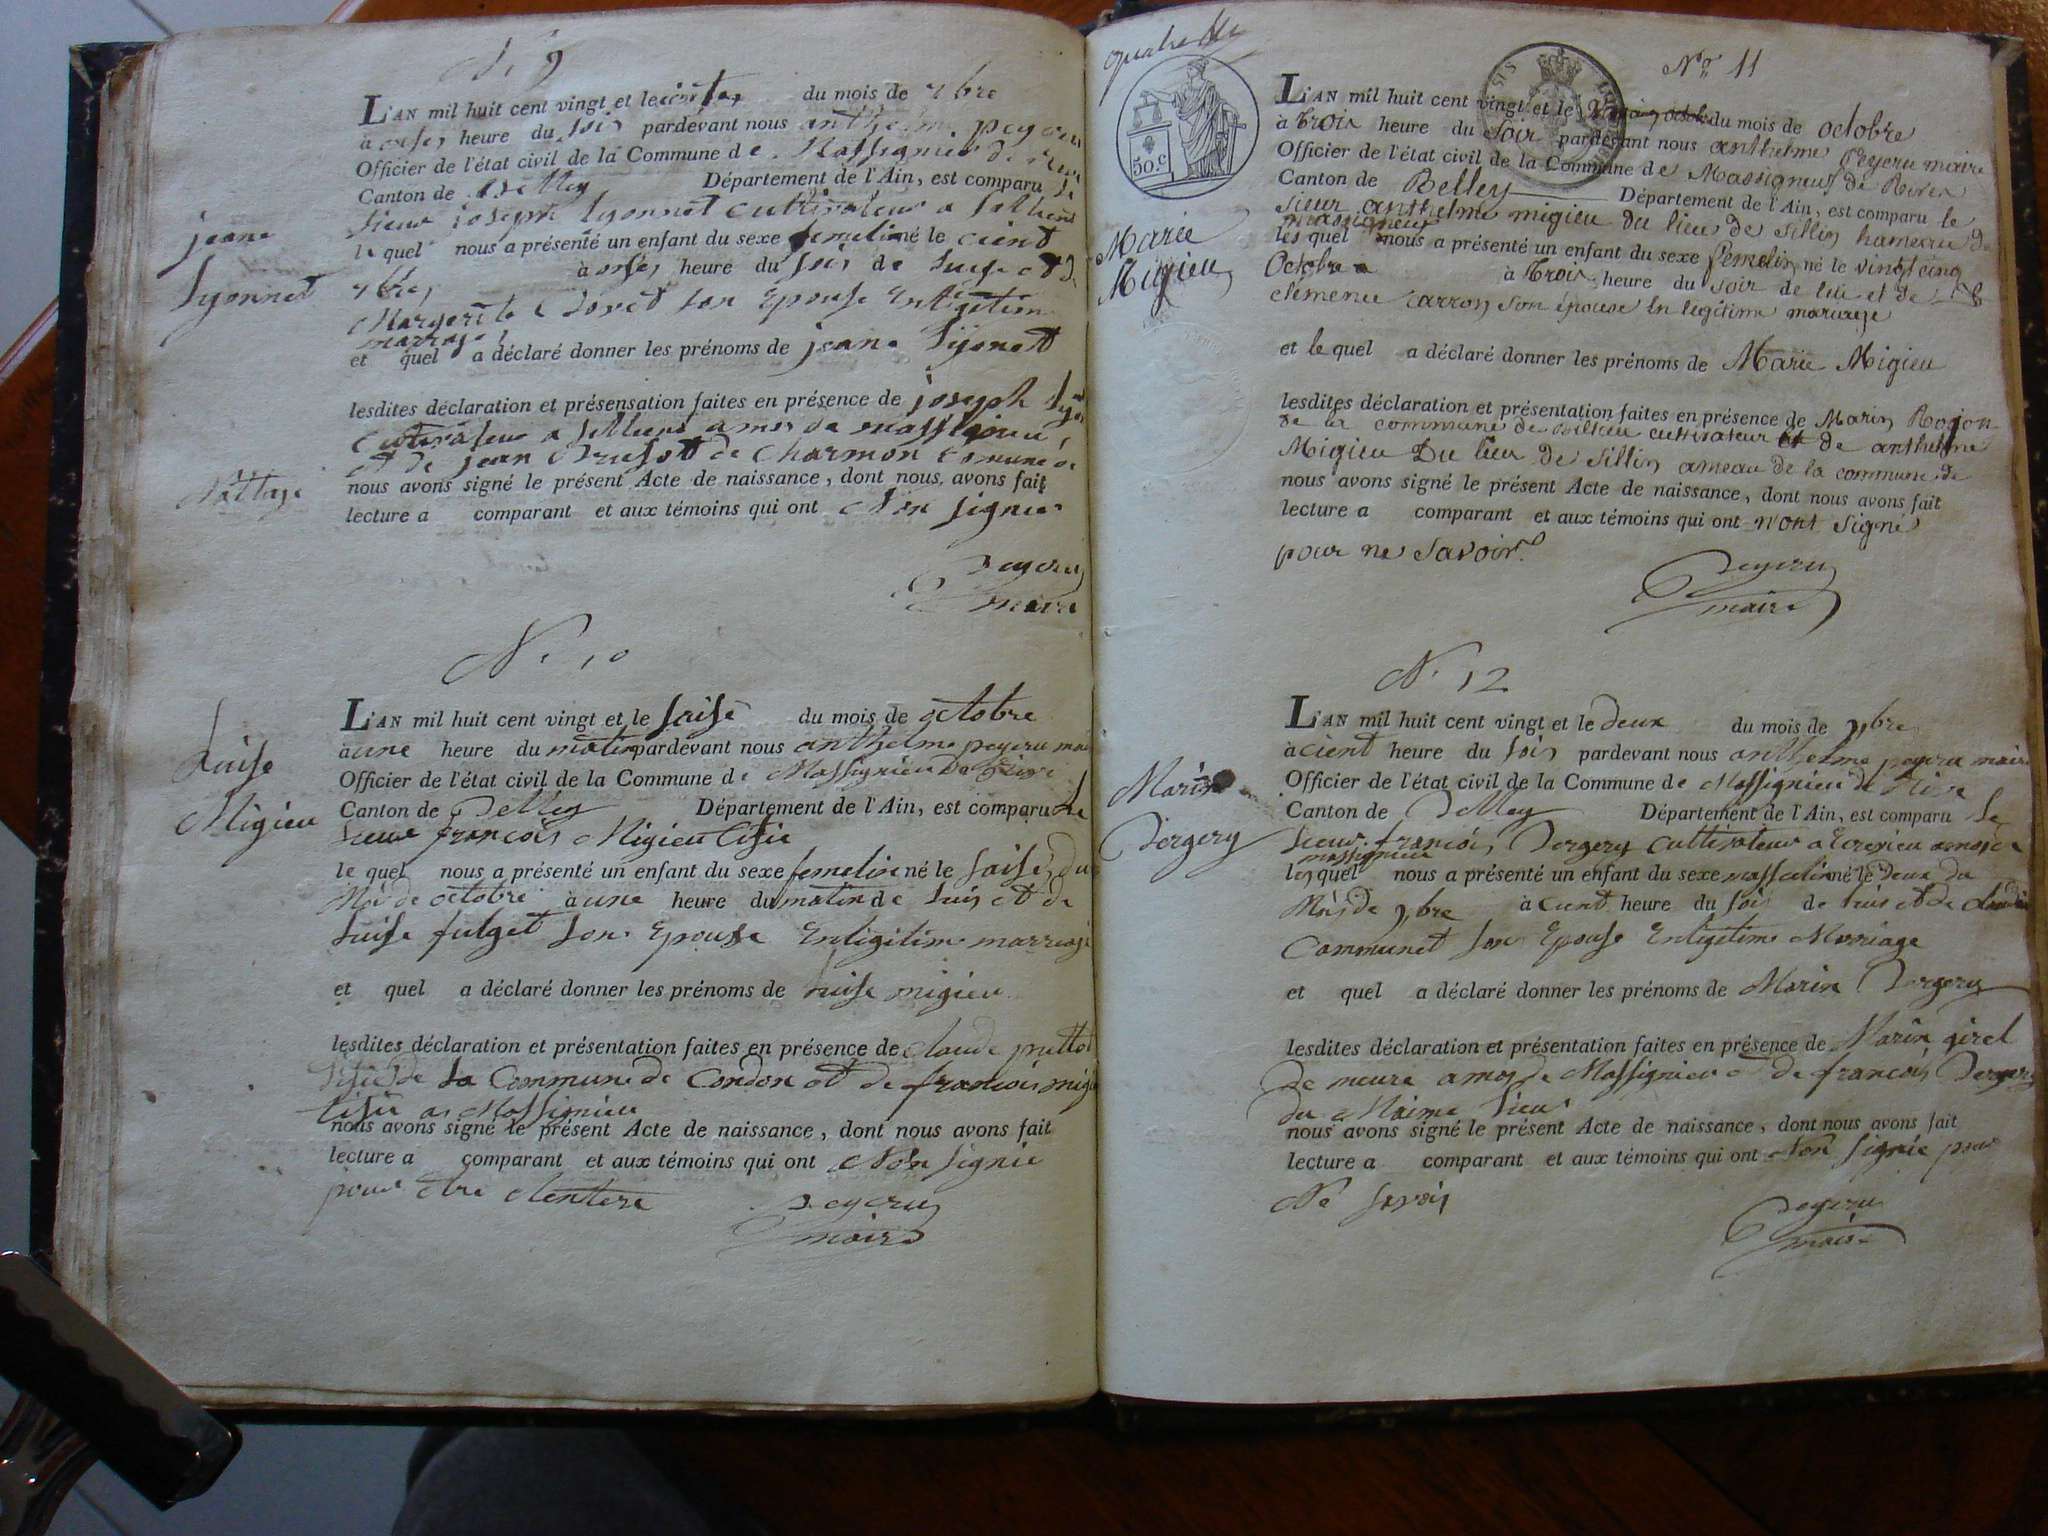 N. 9
L'AN mil huit cent vingt et le du mois de 7bre
à onse heure du soir pardevant nous anthelme peyeru
Officier de l'état civil de la Commune de Massignieu de
Canton de Belley Département de l'Ain, est comparu le
jeane
Lyonnet
sieur joseph Lyonnet cultivateur a
le quel nous a présenté un enfant du sexe femelin né le cient
7bre à onse heure du soir de et d
Margerite son Epouse En legetime
marriage
et quel a déclaré donner les prénoms de jeane Lyonet
lesdites déclaration et présensation faites en présence de joseph
cultivateur a de massignieu
et de jean de Charmon Comune de
nous avons signé le présent Acte de naissance, dont nous avons fait
lecture a comparant et aux témoins qui ont Non signie
Peyeru
maire
N. 10
Luise
Migieu
L'AN mil huit cent vingt et le saise du mois de octobre
à une heure du matin pardevant nous anthelme peyeru mai
Officier de l'état civil de la Commune de Massignieu de Rive
Canton de Belley Département de l'Ain, est comparu Le
sieur francois Migieu tisie
le quel nous a présenté un enfant du sexe femelin né le saise du
Moi de octobre à une heure du matin de luis et de
Luise fulget son Epouse En ligitime marriage
et quel a déclaré donner les prénoms de Luise migieu
lesdites déclaration et présentation faites en présence de Claude
de la Commune de Condon et de francois mig
tisie a Massignieu
nous avons signé le présent Acte de naissance, dont nous avons fait
lecture a comparant et aux témoins qui ont Non signie
pour etre
Peyeru
maire
50.c
Nº 11
L'AN mil huit cent vingt et le du mois de octobre
à Trois heure du soir pardevant nous anthelme Peyeru maire
Officier de l'état civil de la Commune de Massigneuf de Rives
Canton de Belley Département de l'Ain, est comparu le
Marie
Migieu
sieur anthelme migieu du lieu de Sillin hameau de
massigneuf
les quel nous a présenté un enfant du sexe femelin né le vingt cinq
Octobre à Trois heure du soir de lui et de
clemence carron son épouse en legitime mariage
et le quel a déclaré donner les prénoms de Marie Migieu
lesdites déclaration et présentation faites en présence de Marin Rojon
de la commune de cultivateur et de anthelme
Migieu Du lieu de Sillin ameau de la commune de
nous avons signé le présent Acte de naissance, dont nous avons fait
lecture a comparant et aux témoins qui ont n'ont signé
pour ne savoir
Peyeru
maire
N. 12
L'AN mil huit cent vingt et le deux du mois de 9bre
à cient heure du soir pardevant nous anthelme peyeru maire
Officier de l'état civil de la Commune de Massignieu de Rive
Canton de Belley Département de l'Ain, est comparu Le
Marin
Dergery
sieur francois Dergery cultivateur a
massignieu
les quel nous a présenté un enfant du sexe masculin né le deux du
Mois de 9bre à cient heure du soir de luis et de
Communet son Epouse En ligetime Marriage
et quel a déclaré donner les prénoms de Marin Dergery
lesdites déclaration et présentation faites en présence de Marin girel
De meure de Massignieu de francois Dergery
du Maime lieu
nous avons signé le présent Acte de naissance, dont nous avons fait
lecture a comparant et aux témoins qui ont Non signie pour
Ne savoir
Peyeru
maire